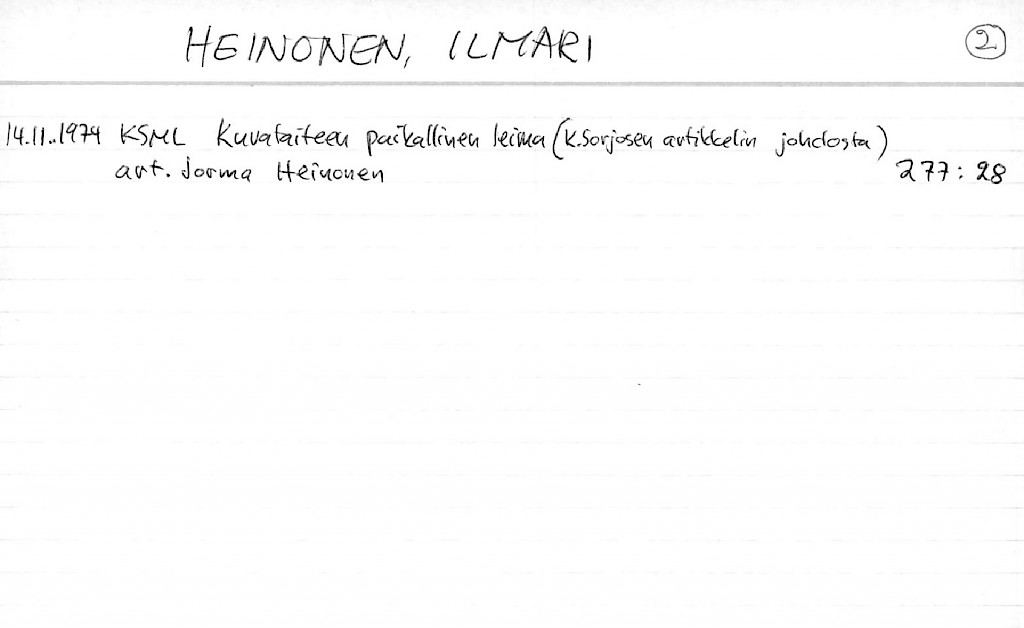 HEINONEN, ILMARI 2
14.11.1974 KSML Kuvataiteen paikallinen leima (K.Sorjosen artikkelin johdosta)
art. Jorma Heinonen 277:28